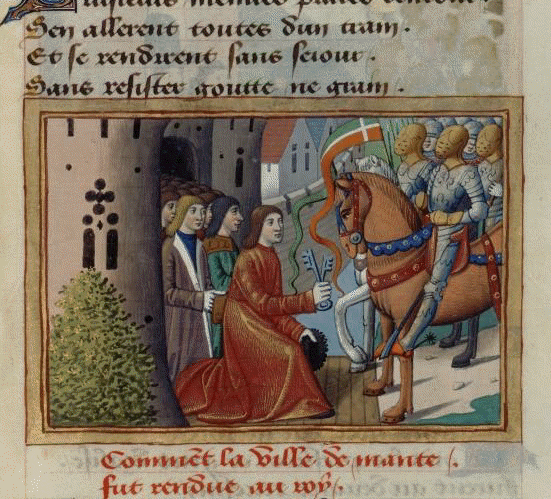 Plusieurs menues places dentour.
Sen allerent toutes dun train.
Et se rendirent sans seiour.
Sans resister goutte ne grain.
Commēt la ville de mante /.
fut rendue au roy /.